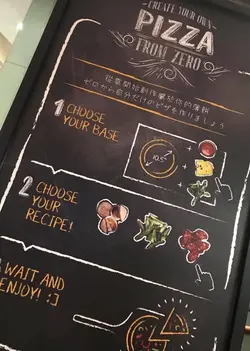 -CREATE YOUR OWN-
PIZZA
FROM ZERO
從零開始制作屬於你的薄餅
ゼロから自分だけのピザを作りましょう
1 CHOOSE
YOUR BASE
10.5"
2 CHOOSE
YOUR
RECIPE!
WAIT AND
ENJOY! :]